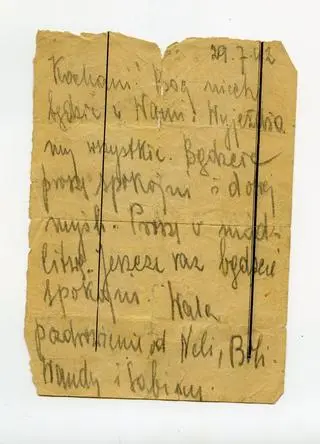 29.7.42
Kochani! Bóg niech
będzie z Wami! Wyjeżdża
my wszystkie. Bądźcie
proszę spokojni i dobrej
myśli. Proszę o mod-
litwę. jeszcze raz bądźcie
spokojni.
pozdrowienia od Neli, Boli
Wandy i Sabiny.